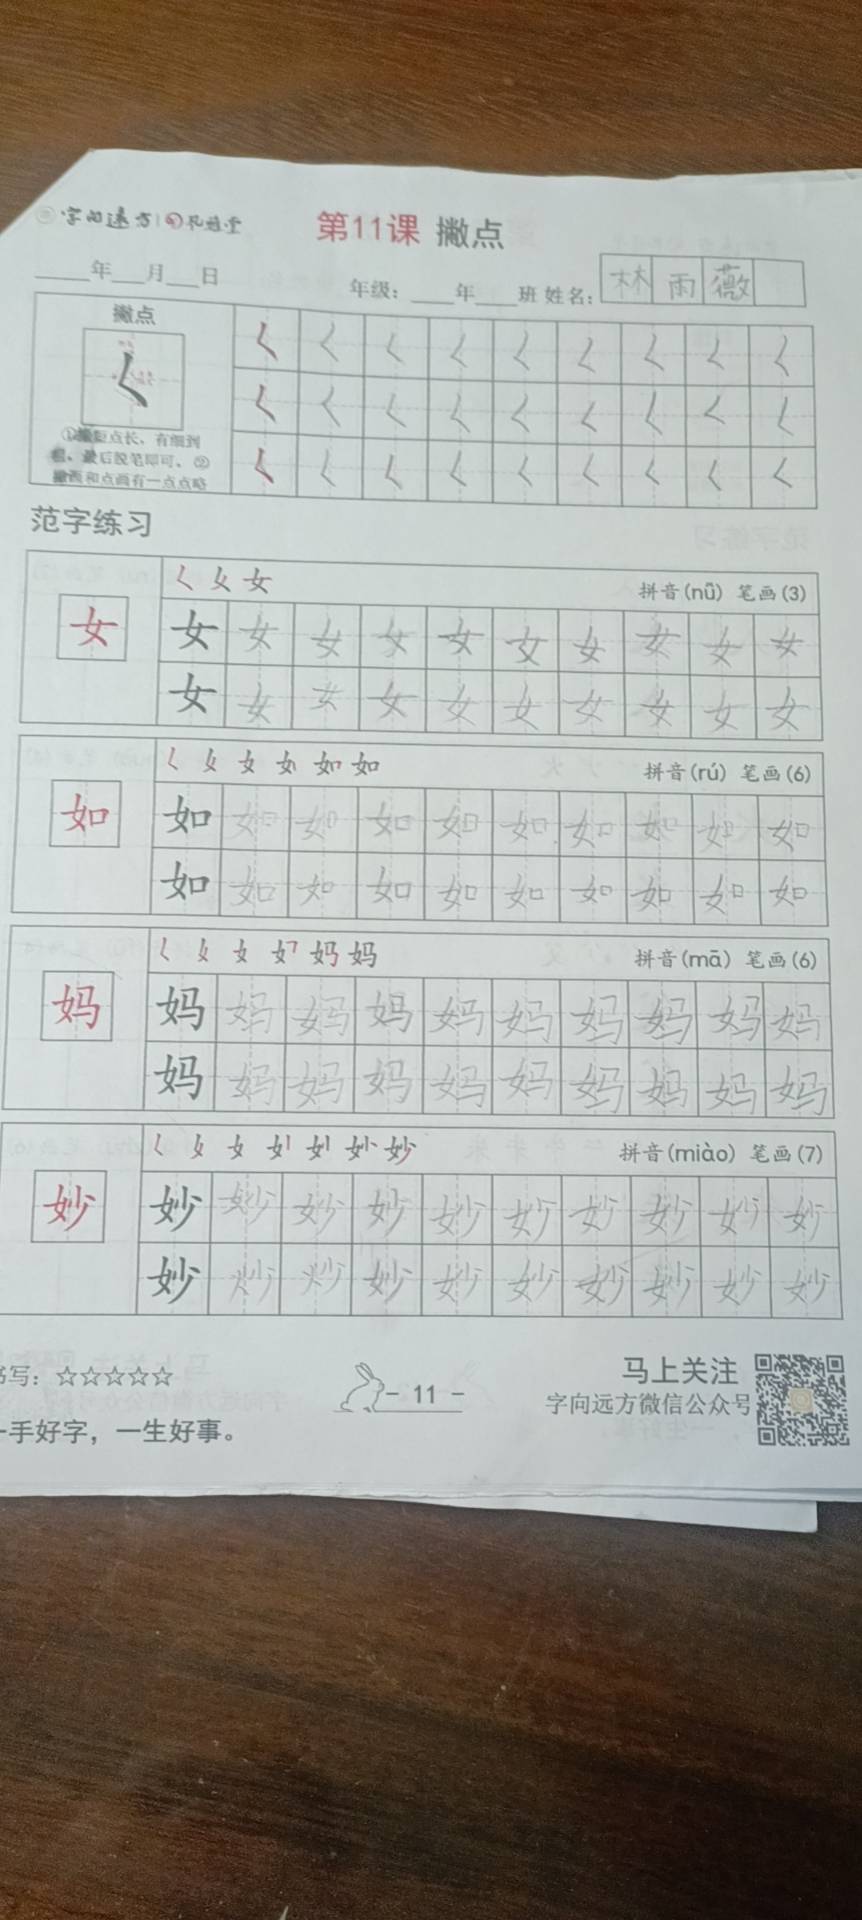 字向远方
第11课 撇点
年 月 日
年级: 年 班 姓名: 林雨薇
撇点
点长、有细到
最后脱笔即可。②
撇画和点画有一点点略
范字练习
𡿨 女 女
拼音(nǚ) 笔画(3)
女 女 女 女 女 女 女 女 女 女 女
女 女 女 女 女 女 女 女 女 女
拼音(rú) 笔画(6)
如 如 如 如 如 如 如 如 如 如 如
如 如 如 如 如 如 如 如 如 如
拼音(mā) 笔画(6)
妈 妈 妈 妈 妈 妈 妈 妈 妈 妈 妈
妈 妈 妈 妈 妈 妈 妈 妈 妈 妈
拼音(miào) 笔画(7)
妙 妙 妙 妙 妙 妙 妙 妙 妙 妙 妙
妙 妙 妙 妙 妙 妙 妙 妙 妙 妙
写:☆☆☆☆☆
- 11 -
马上关注
字向远方微信公众号
手好字，一生好事。